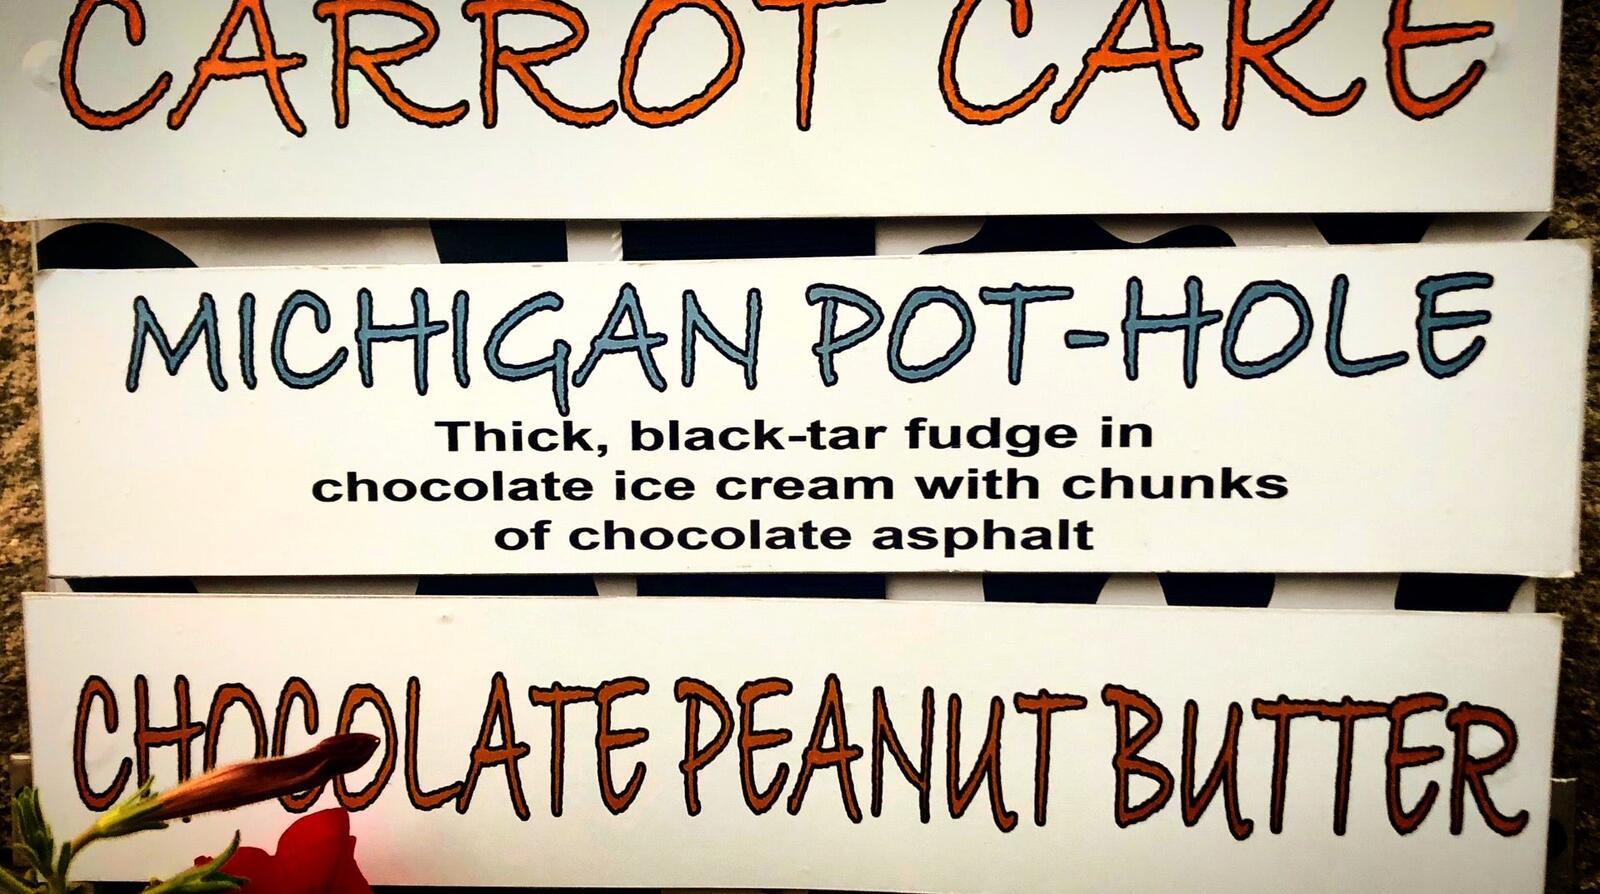 CARROT CAKE
MICHIGAN POT-HOLE
Thick, black-tar fudge in
chocolate ice cream with chunks
of chocolate asphalt
CHOCOLATE PEANUT BUTTER